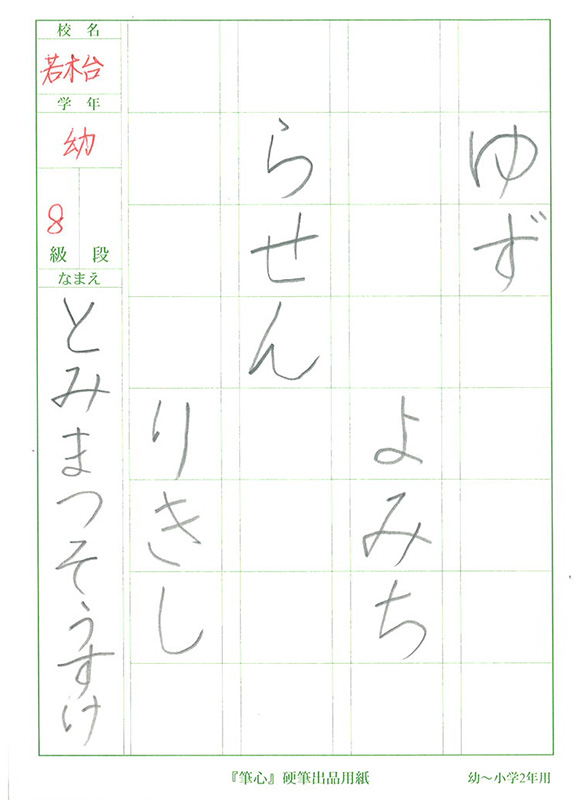 ゆず
よみち
らせん
りきし
校名
若木台
学年
幼
8
級 段
なまえ
とみまつそうすけ
『筆心』硬筆出品用紙
幼〜小学2年用